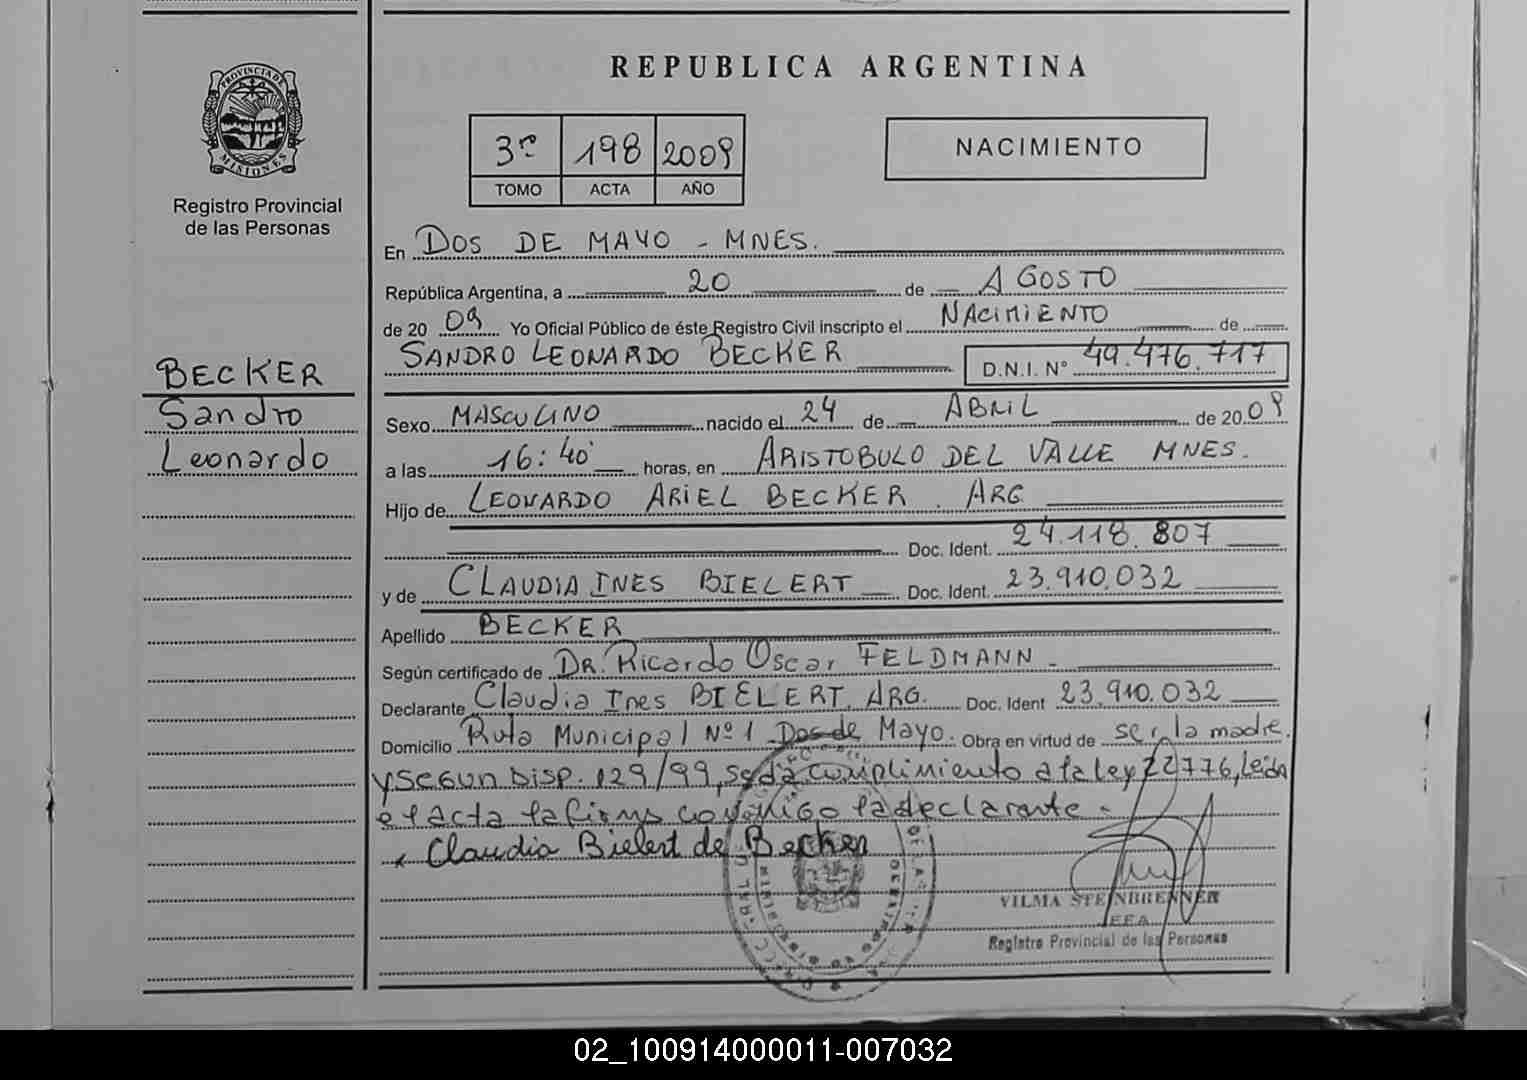 REPUBLICA ARGENTINA
PROVINCIA DE
MISIONES
Registro Provincial
de las Personas
3ro 198 2009
TOMO ACTA AÑO
NACIMIENTO
En DOS DE MAYO - MNES.
República Argentina, a 20 de AGOSTO
de 20 09 Yo Oficial Público de éste Registro Civil inscripto el NACIMIENTO de
SANDRO LEONARDO BECKER D.N.I. N° 49.476.717
BECKER
Sandro
Leonardo
Sexo MASCULINO nacido el 24 de ABRIL de 20 09
a las 16:40 horas, en ARISTOBULO DEL VALLE MNES.
Hijo de LEONARDO ARIEL BECKER . ARG
Doc. Ident. 24.118.807
y de CLAUDIA INES BIELERT Doc. Ident. 23.910.032
Apellido BECKER
Según certificado de DR. Ricardo Oscar FELDMANN -
Declarante Claudia Ines BIELERT, ARG. Doc. Ident 23.910.032
Domicilio Ruta Municipal Nº 1 Dos de Mayo. Obra en virtud de ser la madre.
y SEGUN DISP. 129/99, se da cumplimiento a la ley 22776, Leida
el acta la firma conmigo la declarante -
Claudia Bielert de Becker
VILMA STEINBRENNER
Registro Provincial de las Personas
02_100914000011-007032